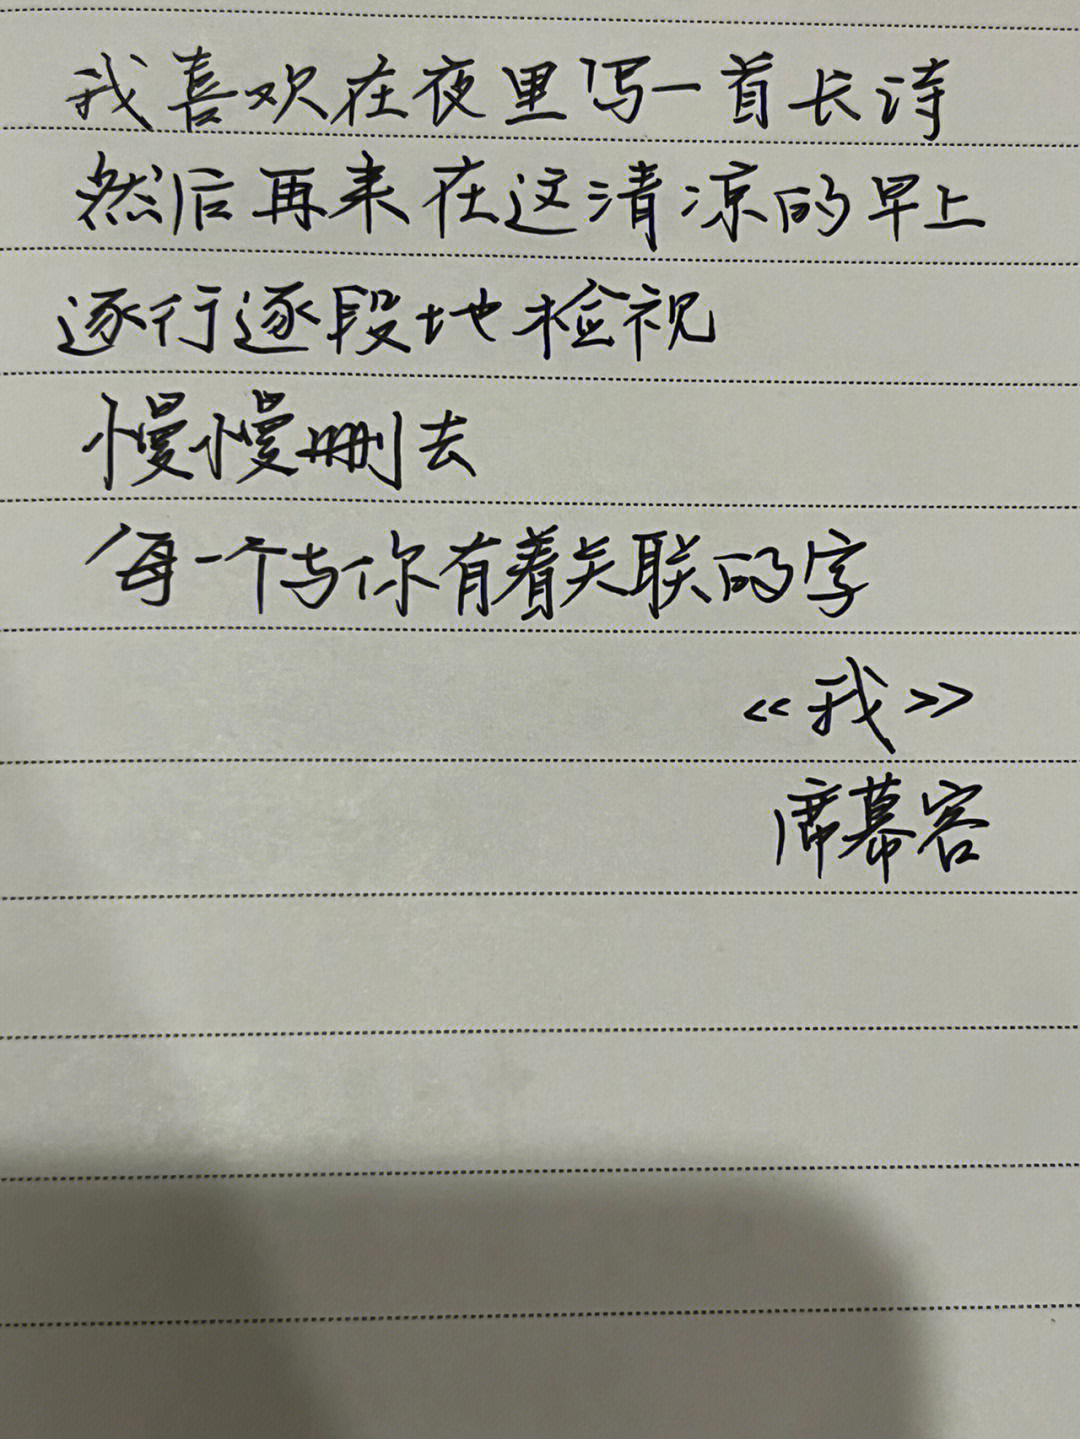 我喜欢在夜里写一首长诗
然后再来在这清凉的早上
逐行逐段地检视
慢慢删去
每一个与你有着关联的字
《我》
席幕容